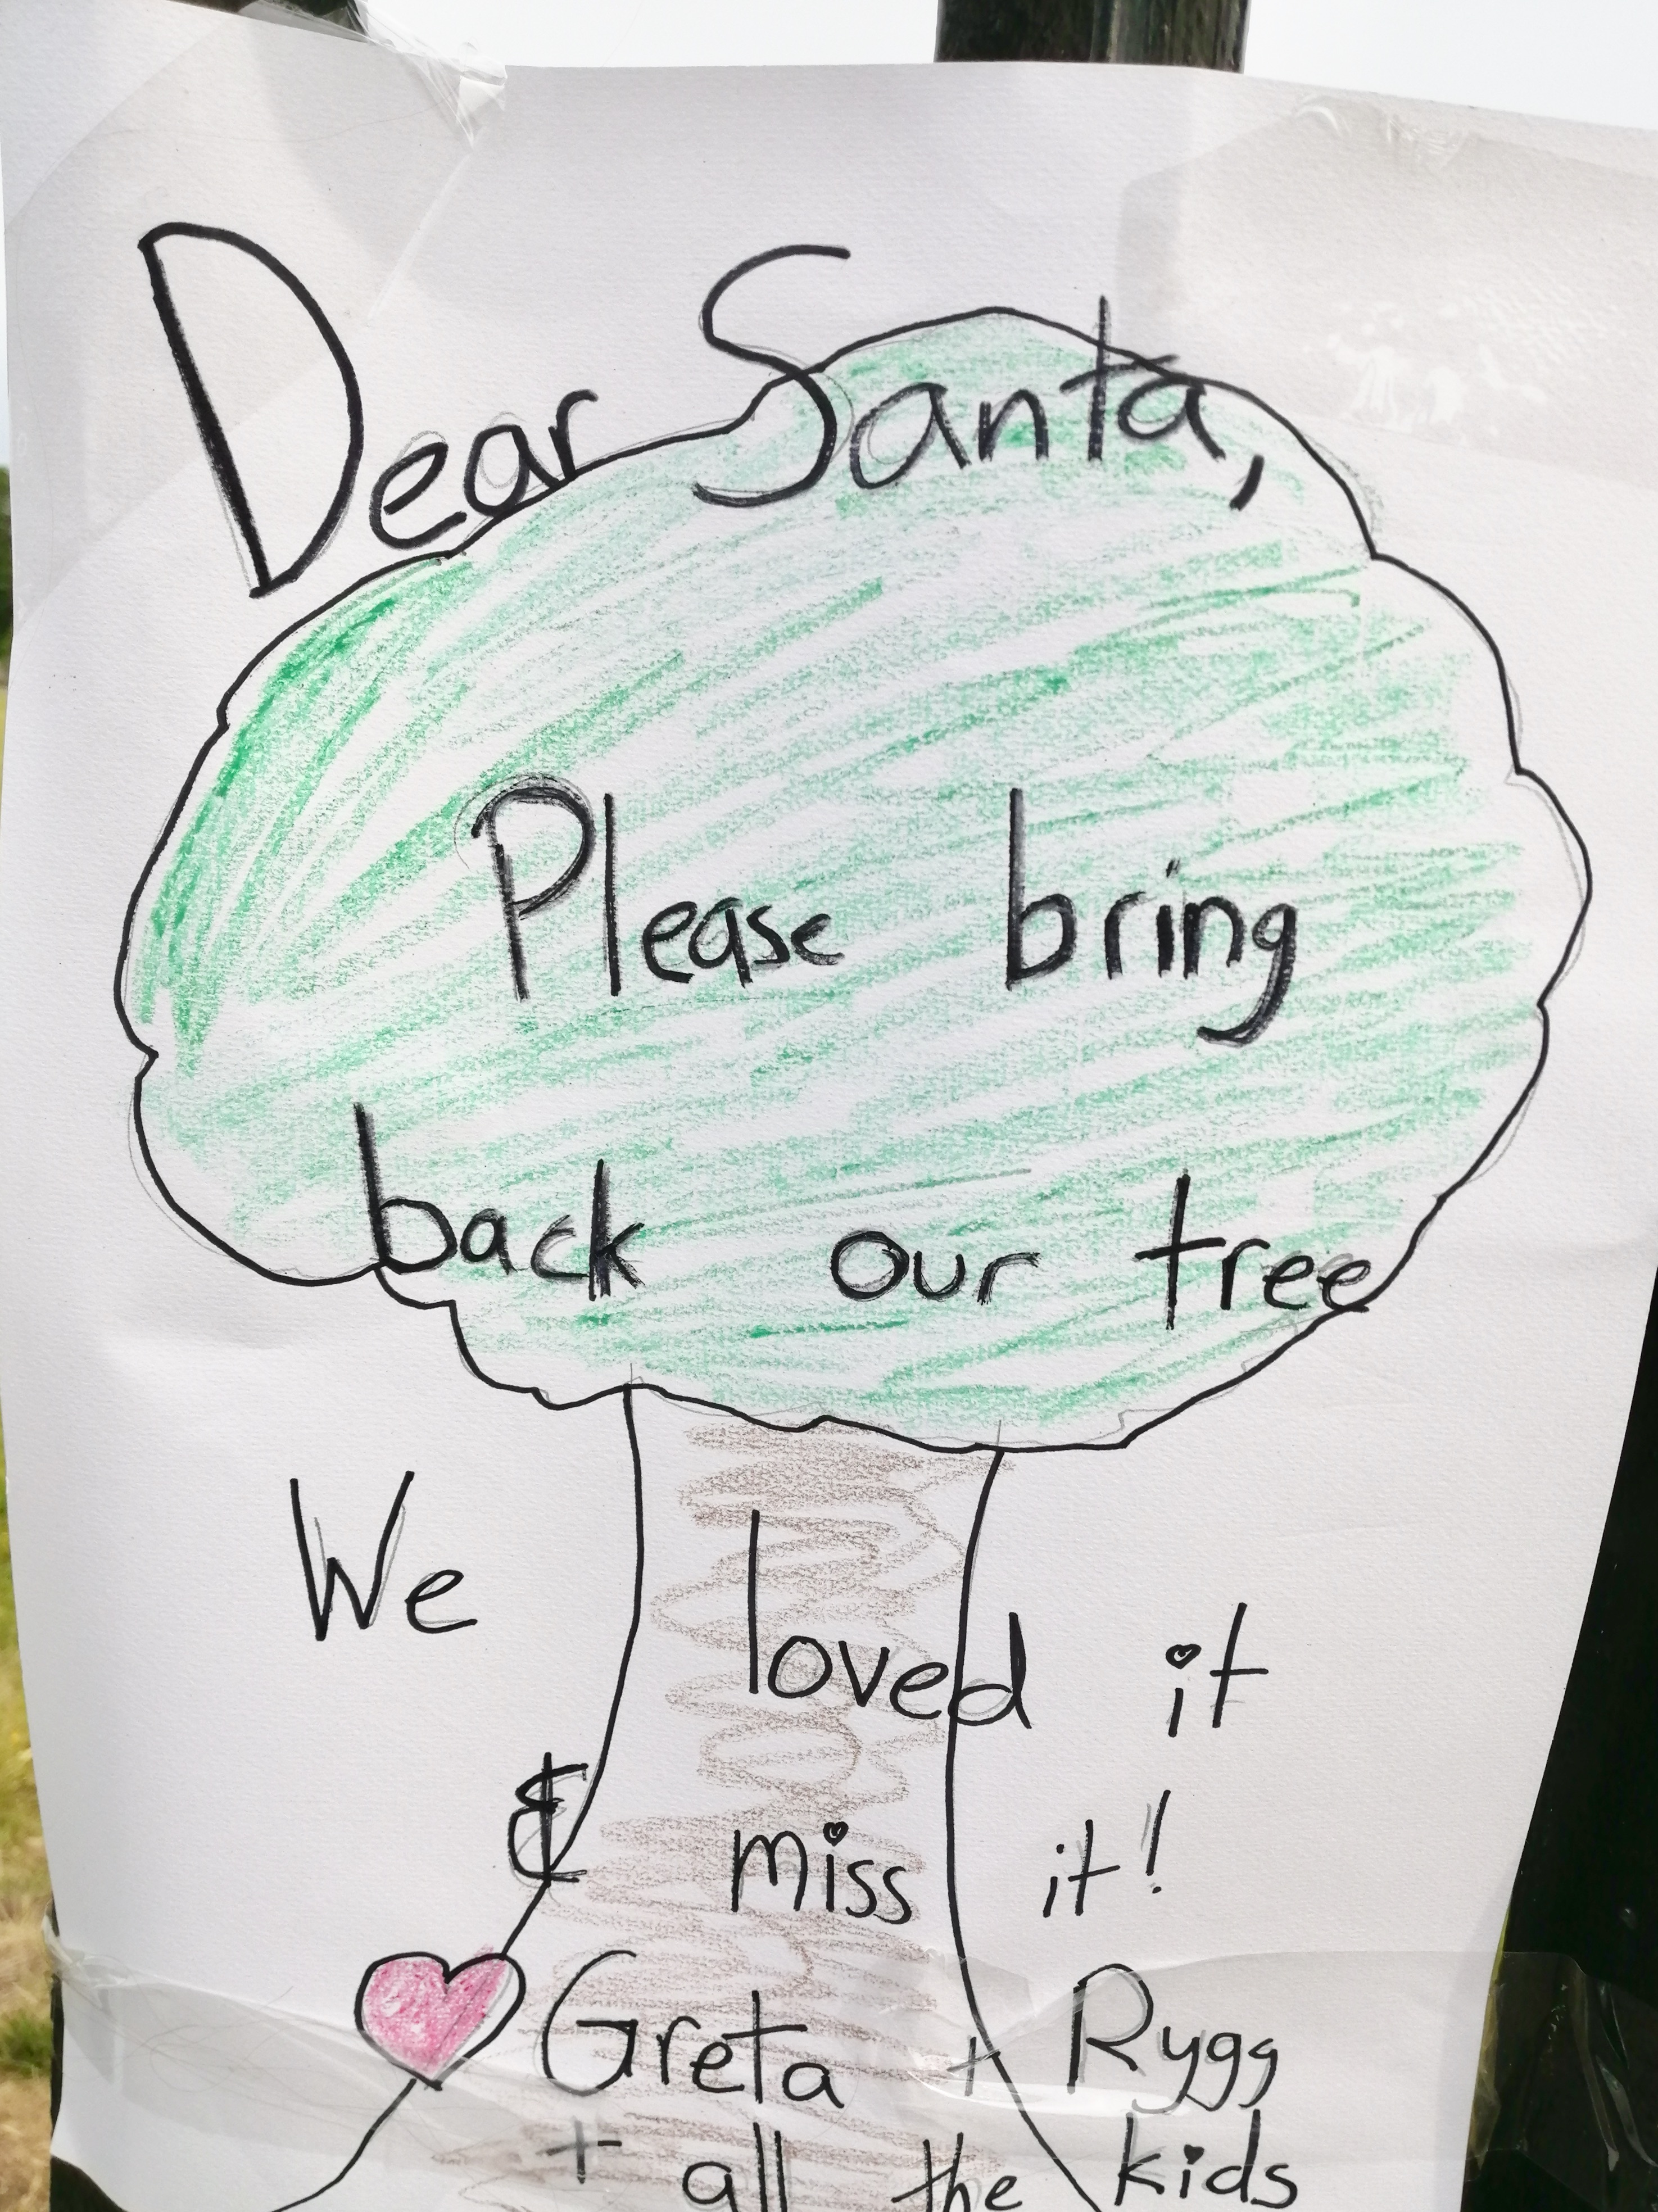 Dear Santa,
Please bring
back our tree
We loved it
& miss it!
Greta + Rygg
+ all the kids